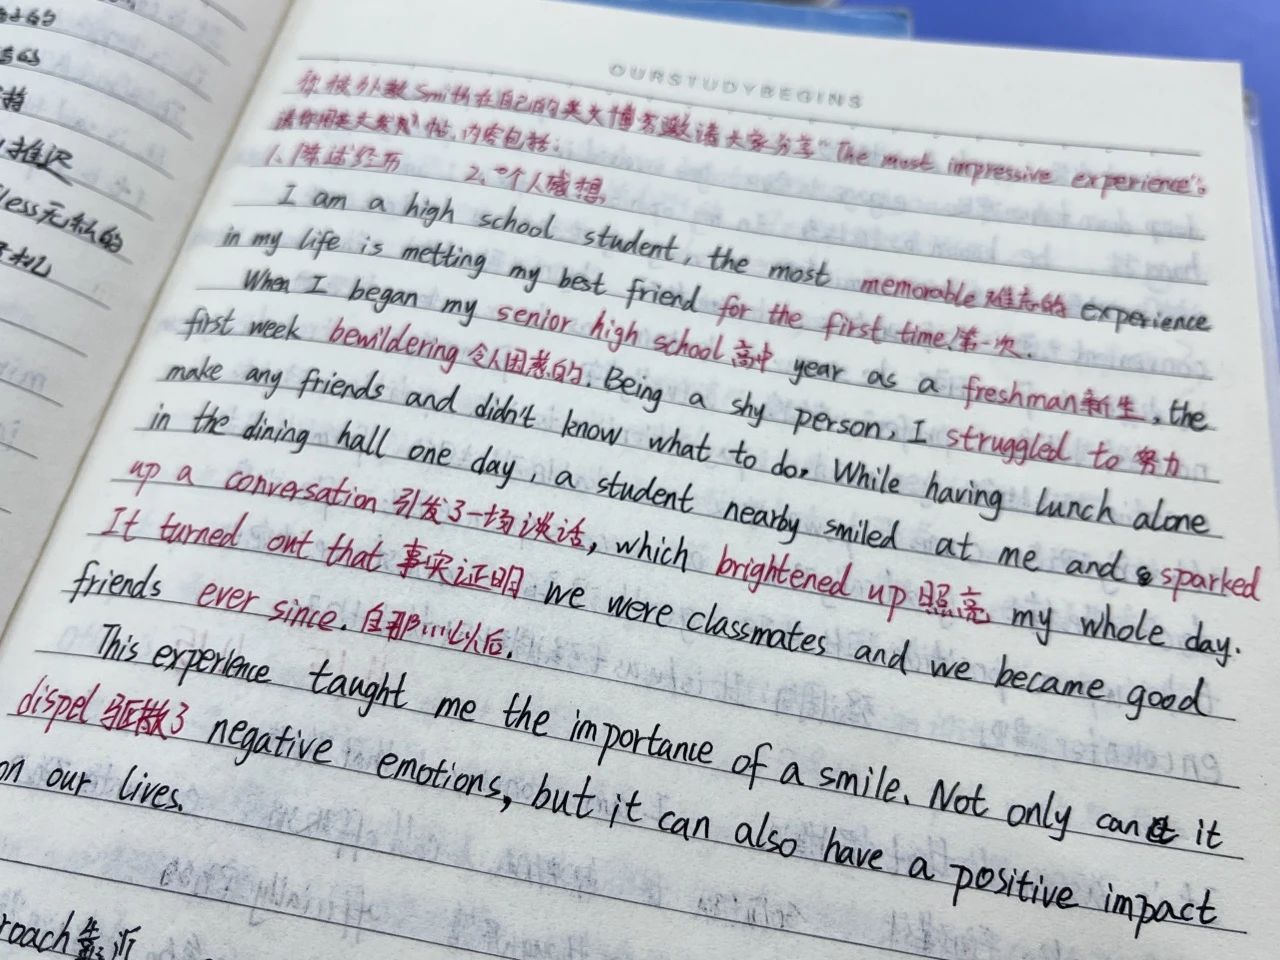 推
less无私的
OURSTUDYBEGINS
你校外教Smith在自己的英文博客邀请大家分享"The most impressive experience".
请你用英文发帖,内容包括:
1.陈述经历 2.个人感想
I am a high school student, the most memorable难忘的 experience
in my life is metting my best friend for the first time.第一次.
When I began my senior high school高中 year as a freshman新生, the
first week bewildering令人困惑的. Being a shy person, I struggled to努力
make any friends and didn't know what to do. While having lunch alone
in the dining hall one day, a student nearby smiled at me and sparked
up a conversation引发了一场谈话, which brightened up照亮 my whole day.
It turned out that事实证明 we were classmates and we became good
friends ever since.自那…以后.
This experience taught me the importance of a smile. Not only can it
dispel驱散了 negative emotions, but it can also have a positive impact
on our lives.
roach靠近